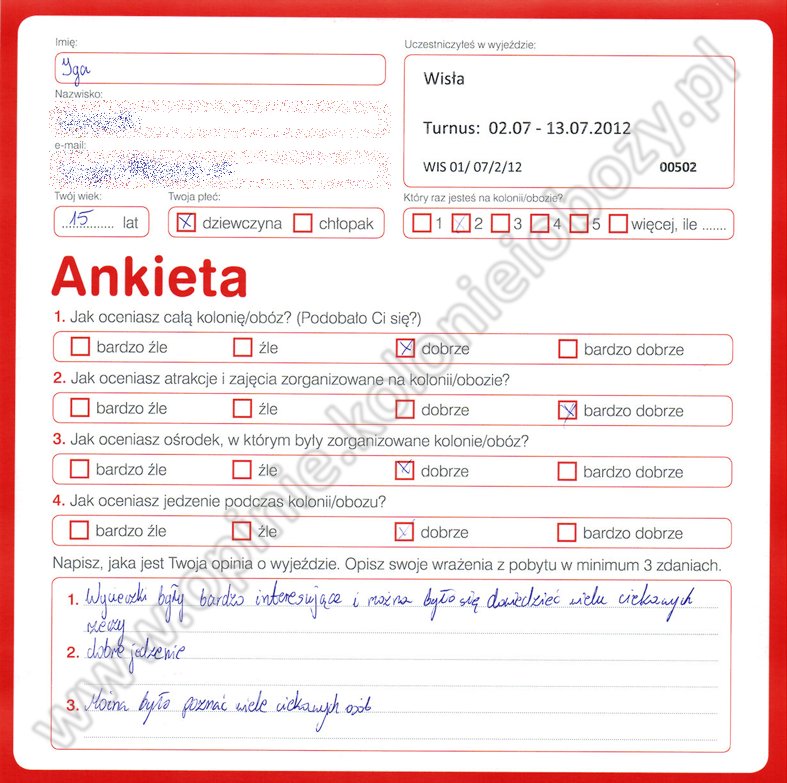 Imię:
Iga
Uczestniczyłeś w wyjeździe:
Wisła
Turnus: 02.07 - 13.07.2012
WIS 01/ 07/2/12 00502
Nazwisko:
e-mail:
Twój wiek:
15 lat
Twoja płeć:
dziewczyna chłopak
Który raz jesteś na kolonii/obozie?
1 2 3 4 5 więcej, ile .......
Ankieta
1. Jak oceniasz całą kolonię/obóz? (Podobało Ci się?)
bardzo źle źle dobrze bardzo dobrze
2. Jak oceniasz atrakcje i zajęcia zorganizowane na kolonii/obozie?
bardzo źle źle dobrze bardzo dobrze
3. Jak oceniasz ośrodek, w którym były zorganizowane kolonie/obóz?
bardzo źle źle dobrze bardzo dobrze
4. Jak oceniasz jedzenie podczas kolonii/obozu?
bardzo źle źle dobrze bardzo dobrze
Napisz, jaka jest Twoja opinia o wyjeździe. Opisz swoje wrażenia z pobytu w minimum 3 zdaniach.
1. Wycieczki były bardzo interesujące i można było się dowiedzieć wielu ciekawych
rzeczy
2. dobre jedzenie
3. Można było poznać wiele ciekawych osób
www.opinie.kolonieiobozy.pl